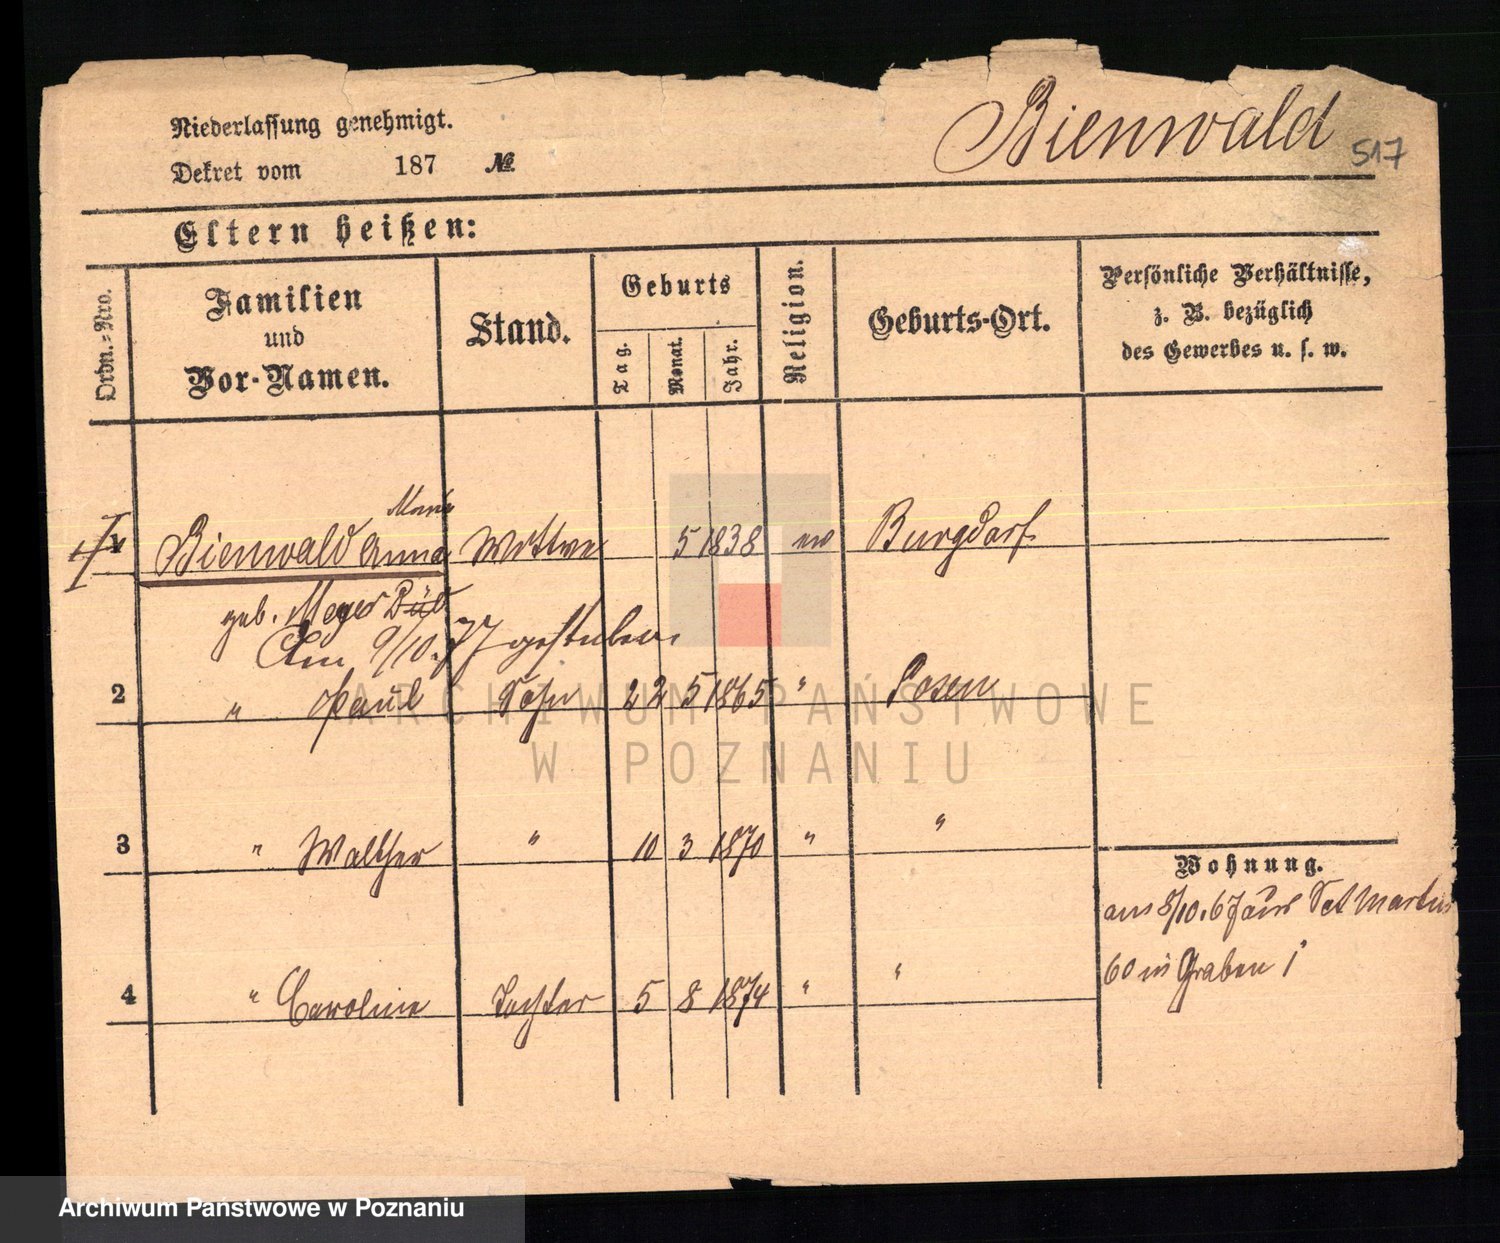 Niederlassung genehmigt.
Bienwald
517
Dekret vom 187 №
Eltern heißen:
Ordn.-Nro.
Familien
und
Vor-Namen.
Stand.
Geburts
Tag.
Monat.
Jahr.
Religion.
Geburts-Ort.
Persönliche Verhältnisse,
z. B. bezüglich
des Gewerbes u. s. w.
Marie
1 Bienwald Anna Wittwe 5 1838 ev Burgdorf
geb. Meyer
Am 9/10. 77 gestorben.
2 " Paul Sohn 22 5 1865 " Posen
3 " Walther " 10 3 1870 " "
Wohnung.
am 8/10. 67 aus Sct Martin
4 " Caroline Tochter 5 8 1874 " "
60 in Graben 1
ARCHIWUM PAŃSTWOWE
W POZNANIU
Archiwum Państwowe w Poznaniu